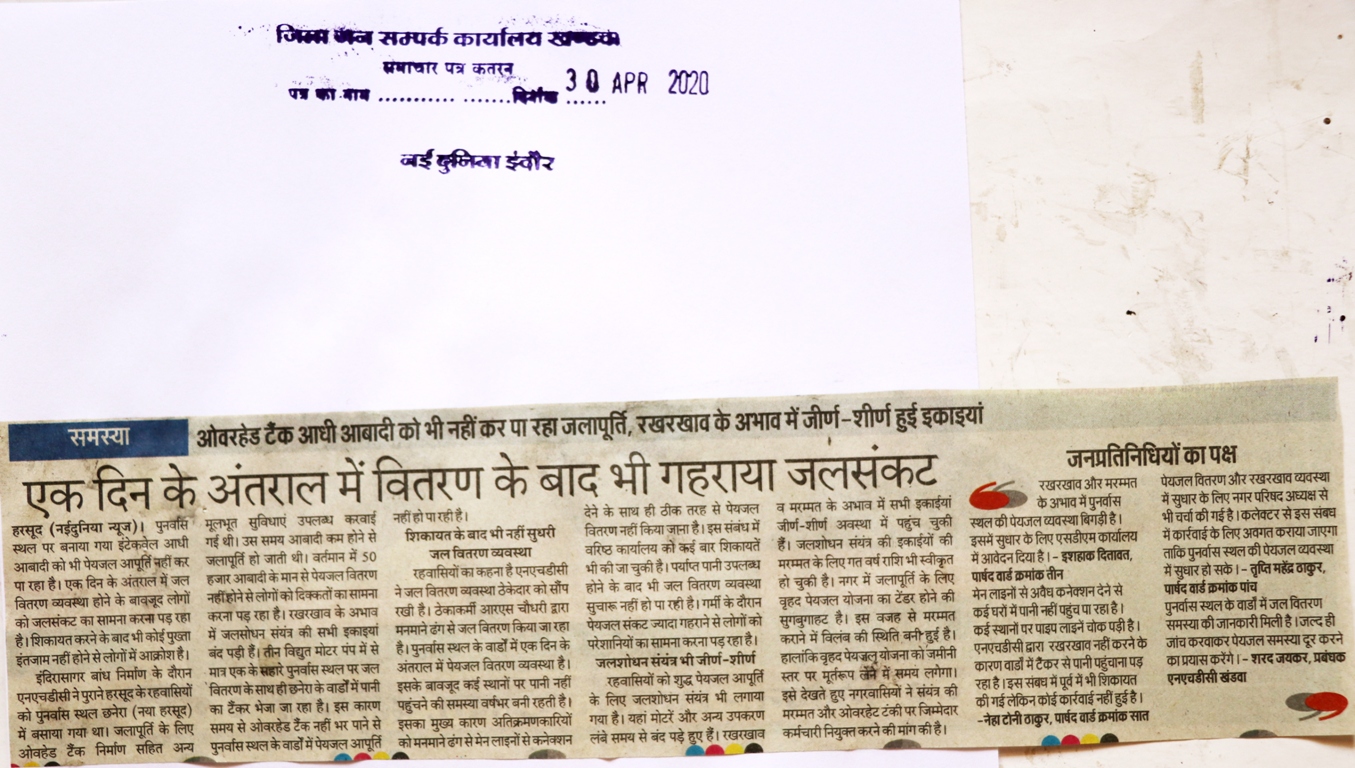 जिला जन सम्पर्क कार्यालय खण्डवा
समाचार पत्र कतरन
पत्र का नाम ........... .......दिनांक ...... 30 APR 2020
नई दुनिया इंदौर
समस्या
ओवरहेड टैंक आधी आबादी को भी नहीं कर पा रहा जलापूर्ति, रखरखाव के अभाव में जीर्ण-शीर्ण हुई इकाइयां
एक दिन के अंतराल में वितरण के बाद भी गहराया जलसंकट
हरसूद (नईदुनिया न्यूज)। पुनर्वास
स्थल पर बनाया गया इंटेकवेल आधी
आबादी को भी पेयजल आपूर्ति नहीं कर
पा रहा है। एक दिन के अंतराल में जल
वितरण व्यवस्था होने के बावजूद लोगों
को जलसंकट का सामना करना पड़ रहा
है। शिकायत करने के बाद भी कोई पुख्ता
इंतजाम नहीं होने से लोगों में आक्रोश है।
इंदिरासागर बांध निर्माण के दौरान
एनएचडीसी ने पुराने हरसूद के रहवासियों
को पुनर्वास स्थल छनेरा (नया हरसूद)
में बसाया गया था। जलापूर्ति के लिए
ओवहेड टैंक निर्माण सहित अन्य
मूलभूत सुविधाएं उपलब्ध करवाई
गई थी। उस समय आबादी कम होने से
जलापूर्ति हो जाती थी। वर्तमान में 50
हजार आबादी के मान से पेयजल वितरण
नहीं होने से लोगों को दिक्कतों का सामना
करना पड़ रहा है। रखरखाव के अभाव
में जलसोधन संयंत्र की सभी इकाइयां
बंद पड़ी हैं। तीन विद्युत मोटर पंप में से
मात्र एक के सहारे पुनर्वास स्थल पर जल
वितरण के साथ ही छनेरा के वार्डों में पानी
का टैंकर भेजा जा रहा है। इस कारण
समय से ओवरहेड टैंक नहीं भर पाने से
पुनर्वास स्थल के वार्डों में पेयजल आपूर्ति
नहीं हो पा रही है।
शिकायत के बाद भी नहीं सुधरी
जल वितरण व्यवस्था
रहवासियों का कहना है एनएचडीसी
ने जल वितरण व्यवस्था ठेकेदार को सौंप
रखी है। ठेकाकर्मी आरएस चौधरी द्वारा
मनमाने ढंग से जल वितरण किया जा रहा
है। पुनर्वास स्थल के वार्डों में एक दिन के
अंतराल में पेयजल व्यवस्था है।
इसके बावजूद कई स्थानों पर पानी नहीं
पहुंचने की समस्या वर्षभर बनी रहती है।
इसका मुख्य कारण अतिक्रमणकारियों
को मनमाने ढंग से मेन लाइनों से कनेक्शन
देने के साथ ही ठीक तरह से पेयजल
वितरण नहीं किया जाना है। इस संबंध में
वरिष्ठ कार्यालय को कई बार शिकायतें
भी की जा चुकी है। पर्याप्त पानी उपलब्ध
होने के बाद भी जल वितरण व्यवस्था
सुचारू नहीं हो पा रही है। गर्मी के दौरान
पेयजल संकट ज्यादा गहराने से लोगों को
परेशानियों का सामना करना पड़ रहा है।
जलशोधन संयंत्र भी जीर्ण-शीर्ण
रहवासियों को शुद्ध पेयजल आपूर्ति
के लिए जलशोधन संयंत्र भी लगाया
गया है। यहां मोटरें और अन्य उपकरण
लंबे समय से बंद पड़े हुए हैं। रखरखाव
व मरम्मत के अभाव में सभी इकाइयां
जीर्ण-शीर्ण अवस्था में पहुंच चुकी
हैं। जलशोधन संयंत्र की इकाईयों की
मरम्मत के लिए गत वर्ष राशि भी स्वीकृत
हो चुकी है। नगर में जलापूर्ति के लिए
वृहद पेयजल योजना का टेंडर होने की
सुगबुगाहट है। इस वजह से मरम्मत
कराने में विलंब की स्थिति बनी हुई है।
हालांकि वृहद पेयजल योजना को जमीनी
स्तर पर मूर्तरूप लेने में समय लगेगा।
इसे देखते हुए नगरवासियों ने संयंत्र की
मरम्मत और ओवरहेट टंकी पर जिम्मेदार
कर्मचारी नियुक्त करने की मांग की है।
जनप्रतिनिधियों का पक्ष
रखरखाव और मरम्मत
के अभाव में पुनर्वास
स्थल की पेयजल व्यवस्था बिगड़ी है।
इसमें सुधार के लिए एसडीएम कार्यालय
में आवेदन दिया है। - इशहाक दितावत,
पार्षद वार्ड क्रमांक तीन
मेन लाइनों से अवैध कनेक्शन देने से
कई घरों में पानी नहीं पहुंच पा रहा है।
कई स्थानों पर पाइप लाइनें चोक पड़ी है।
एनएचडीसी द्वारा रखरखाव नहीं करने के
कारण वार्डों में टैंकर से पानी पहुंचाना पड़
रहा है। इस संबध में पूर्व में भी शिकायत
की गई लेकिन कोई कार्रवाई नहीं हुई है।
-नेहा टोनी ठाकुर, पार्षद वार्ड क्रमांक सात
पेयजल वितरण और रखरखाव व्यवस्था
में सुधार के लिए नगर परिषद अध्यक्ष से
भी चर्चा की गई है। कलेक्टर से इस संबध
में कार्रवाई के लिए अवगत कराया जाएगा
ताकि पुनर्वास स्थल की पेयजल व्यवस्था
में सुधार हो सके। - तृप्ति महेंद्र ठाकुर,
पार्षद वार्ड क्रमांक पांच
पुनर्वास स्थल के वार्डों में जल वितरण
समस्या की जानकारी मिली है। जल्द ही
जांच करवाकर पेयजल समस्या दूर करने
का प्रयास करेंगे। - शरद जयकर, प्रबंधक
एनएचडीसी खंडवा